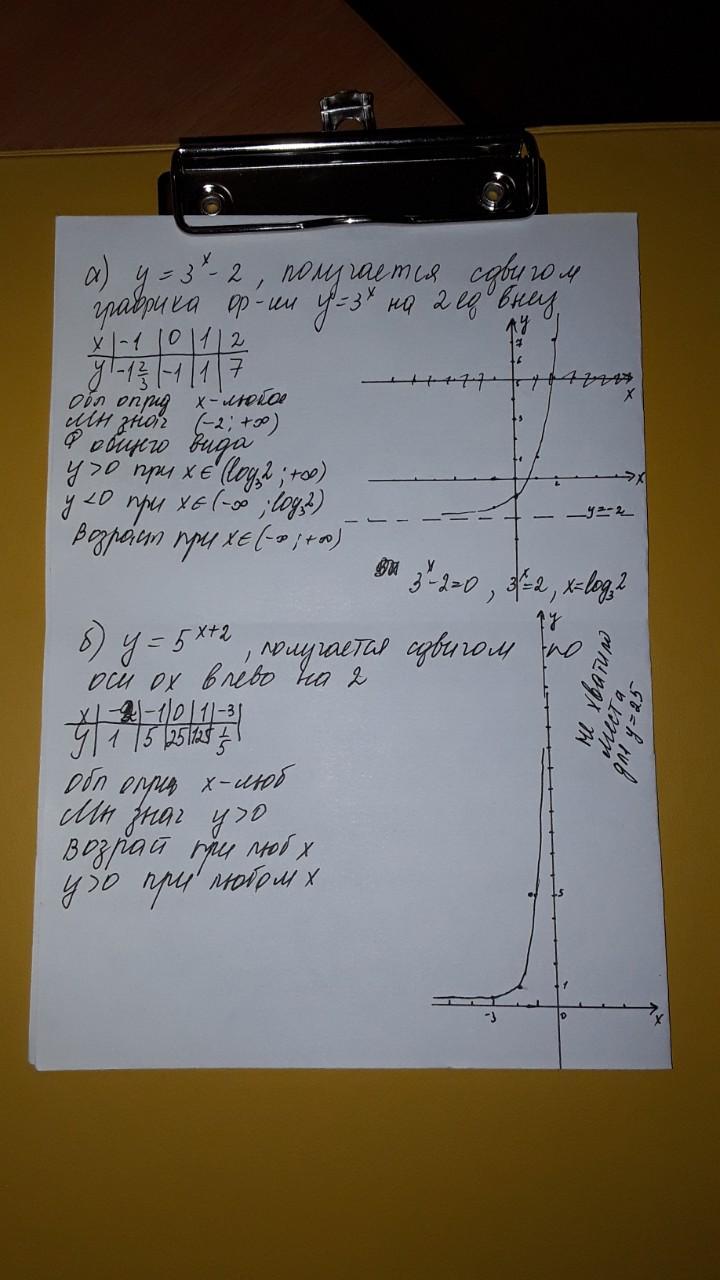 а) y = 3^x - 2, получается сдвигом
графика ф-ии y=3^x на 2 ед вниз
x | -1 | 0 | 1 | 2
y | -1 2/3 | -1 | 1 | 7
Обл опред x-любое
Мн знач (-2; +∞)
Ф общего вида
y>0 при x∈(log₃2; +∞)
y<0 при x∈(-∞; log₃2)
Возраст при x∈(-∞; +∞)
y
7
6
x
3
1
2
x
y=-2
3^x-2=0, 3^x=2, x=log₃2
б) y = 5^{x+2}, получается сдвигом по
оси ox влево на 2
x | -2 | -1 | 0 | 1 | -3
y | 1 | 5 | 25 | 125 | 1/5
Обл опред x-люб
Мн знач y>0
Возраст при люб x
y>0 при любом x
y
не хватило
места
для y=25
5
1
-3
0
x